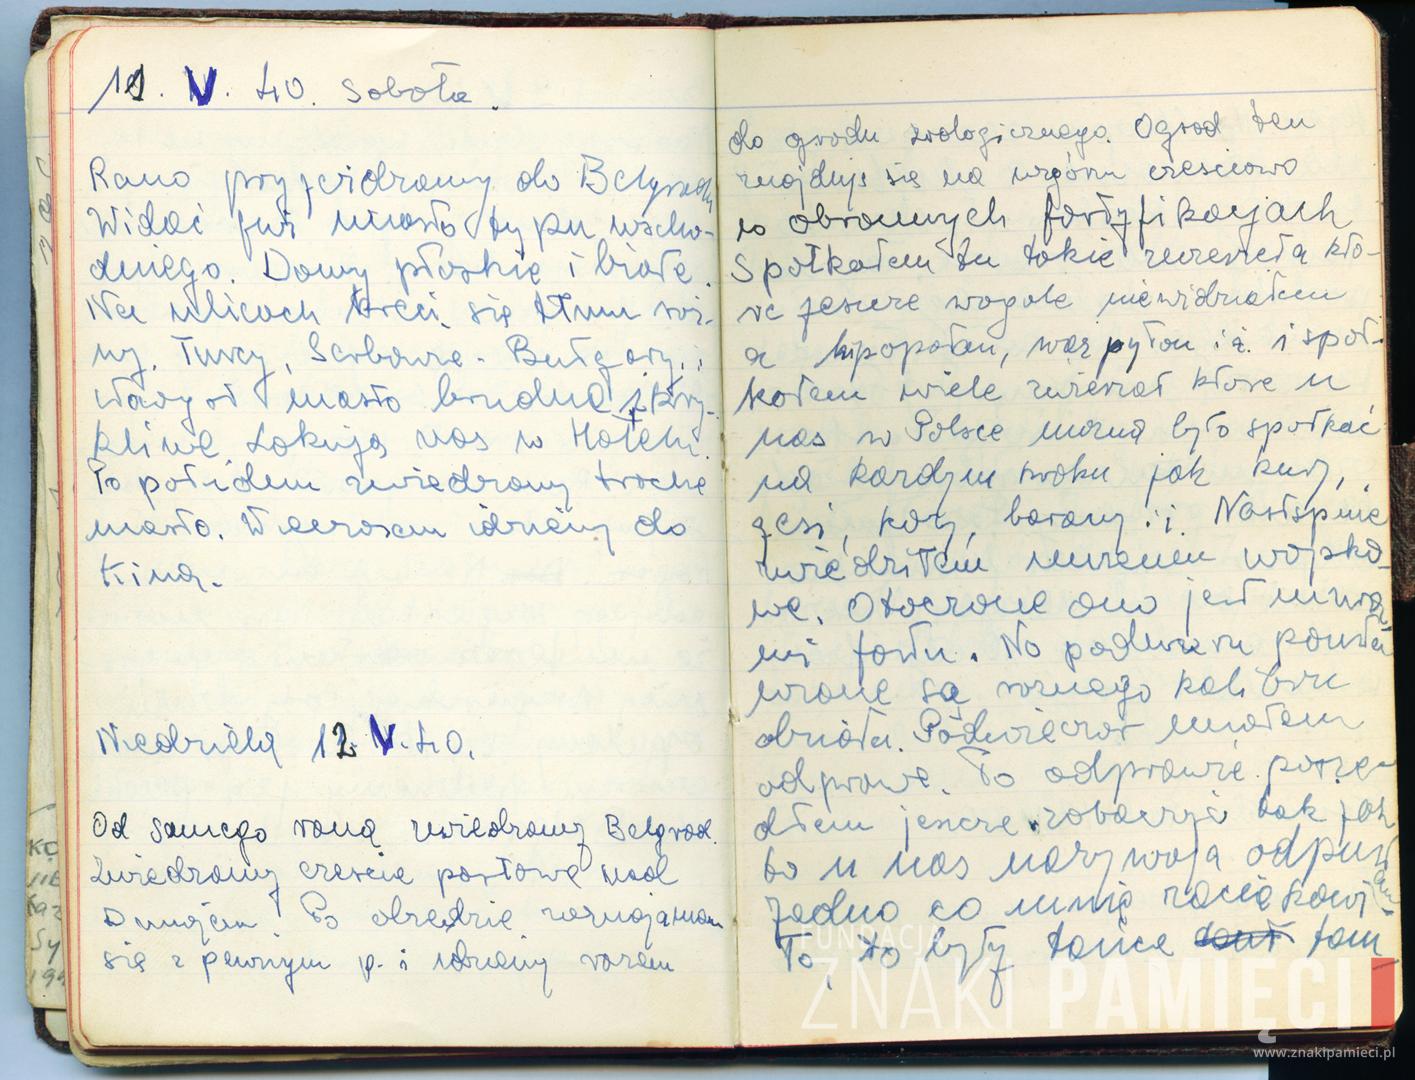 11. V. 40. Sobota.
Rano przyjeżdzamy do Belgradu
Widać już miasto typu wscho-
dniego. Domy płaskie i białe.
Na ulicach kręci się tłum róż-
ny, Turcy, Serbowie. Bułgary, i
miasto brudne i krzy-
kliwe. Lokują nas w Hotelu.
Po połudem zwiedzamy trochę
miasto. Wieczorem idziemy do
kina.
Niedziella 12. V. 40.
Od samego rana zwiedzamy Belgrad.
Zwiedzamy częście portową nad
Dunajem. Po obiedzie zaznajamiam
się z pewnym p. i idziemy razem
do grodu zoologicznego. Ogrod ten
znajduje się na wzgórzu cześciowo
w obronnych fortyfikacjach
Spotkałem tu takie zwierzęta któ-
re jeszcze wogole niewidziałem
a hipopotam, wąż pyton i ż. i spot-
kałem wiele zwierząt które u
nas w Polsce można było spotkać
na każdym kroku jak kury,
gęsi, kozy, barany. i i Nastspnie
zwiedziłem muzeum wojsko-
we. Otoczone ono jest mura-
mi fortu. Na podwurzu pousta
wione są roznego kalibru
działa. Podwieczor miałem
odprawe. Po odprawie poszę-
dłem jeszcze zobaczyć tak jak
to u nas nazywają odpust
jedno co mnie zaciekawi-
To, to były tańce tam
FUNDACJA
ZNAKI PAMIĘCI
www.znakipamieci.pl